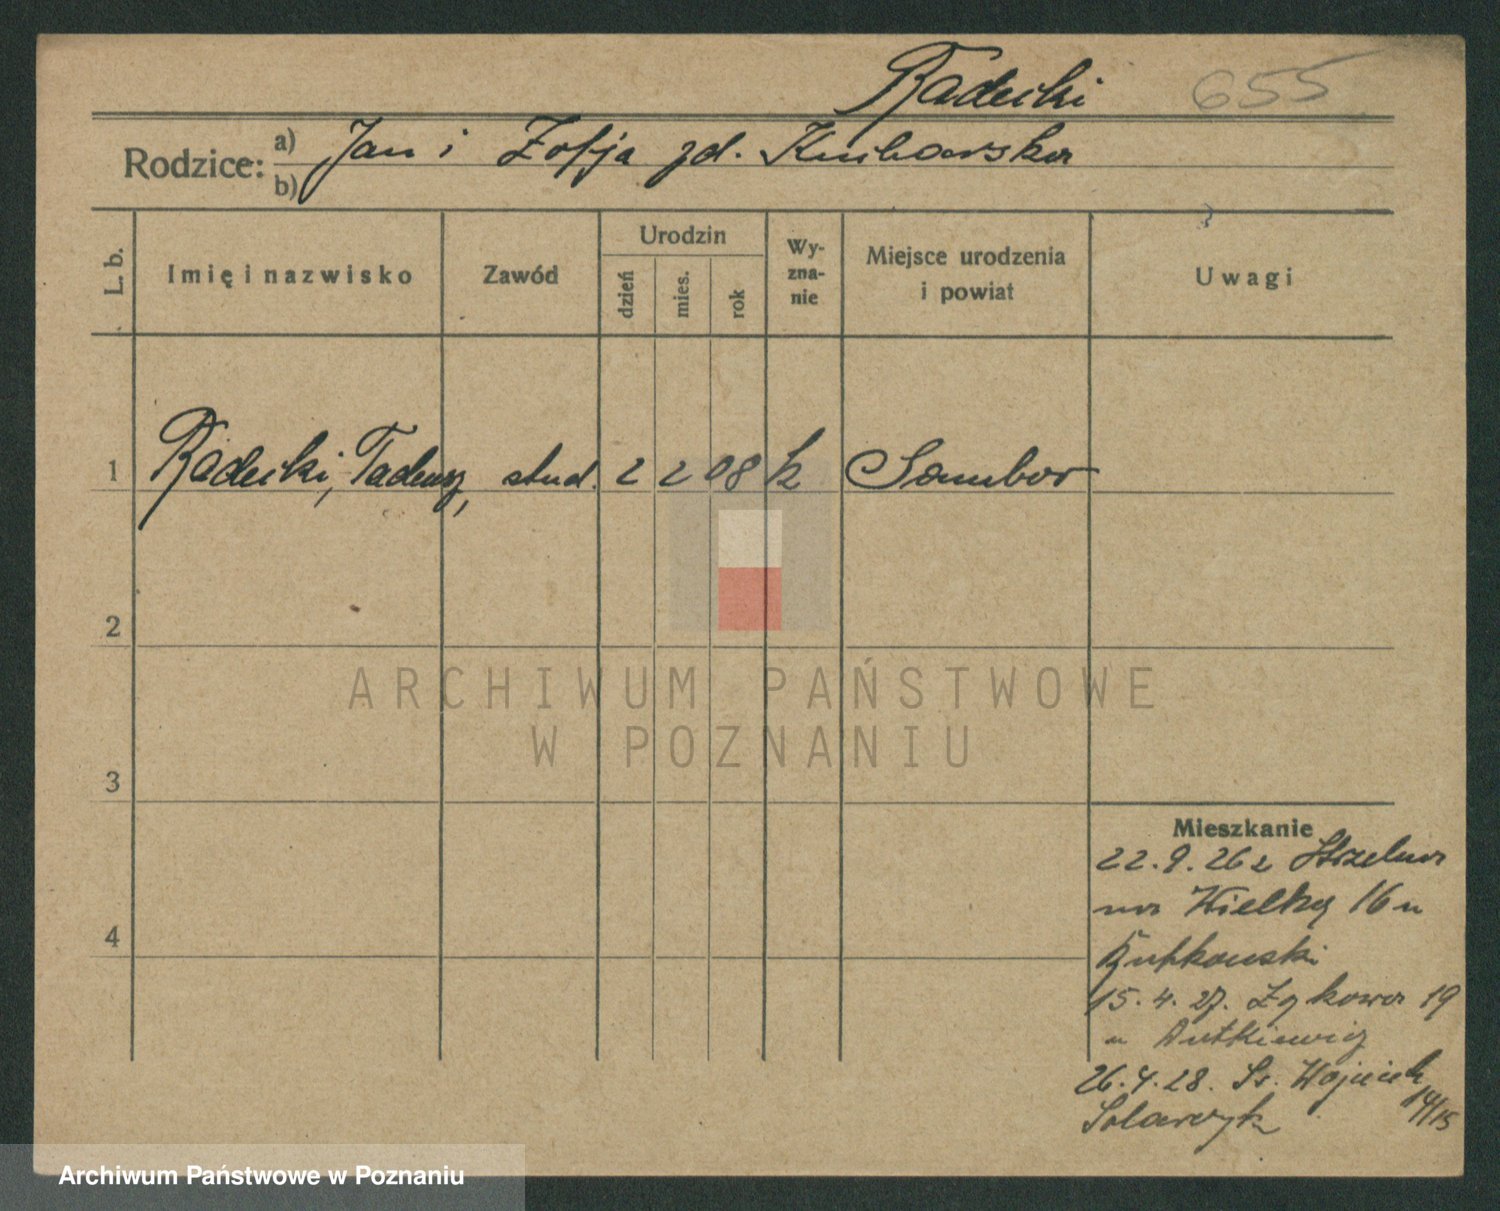 Radecki 655
Rodzice: a) Jan i Zofja zd.
b)
L. b. Imię i nazwisko Zawód Urodzin dzień mies. rok Wy-zna-nie Miejsce urodzenia i powiat Uwagi
1 Radecki, Tadeusz, stud. 2 2 08 k Sambor
2
ARCHIWUM PAŃSTWOWE
W POZNANIU
3
Mieszkanie
22.9.26 z Strzelna
na Wielką 16 u
4
Rutkowski
15.4.27. Łąkowa 19
u
26.4.28. Św. Wojciech 14/15
Solarczyk
Archiwum Państwowe w Poznaniu